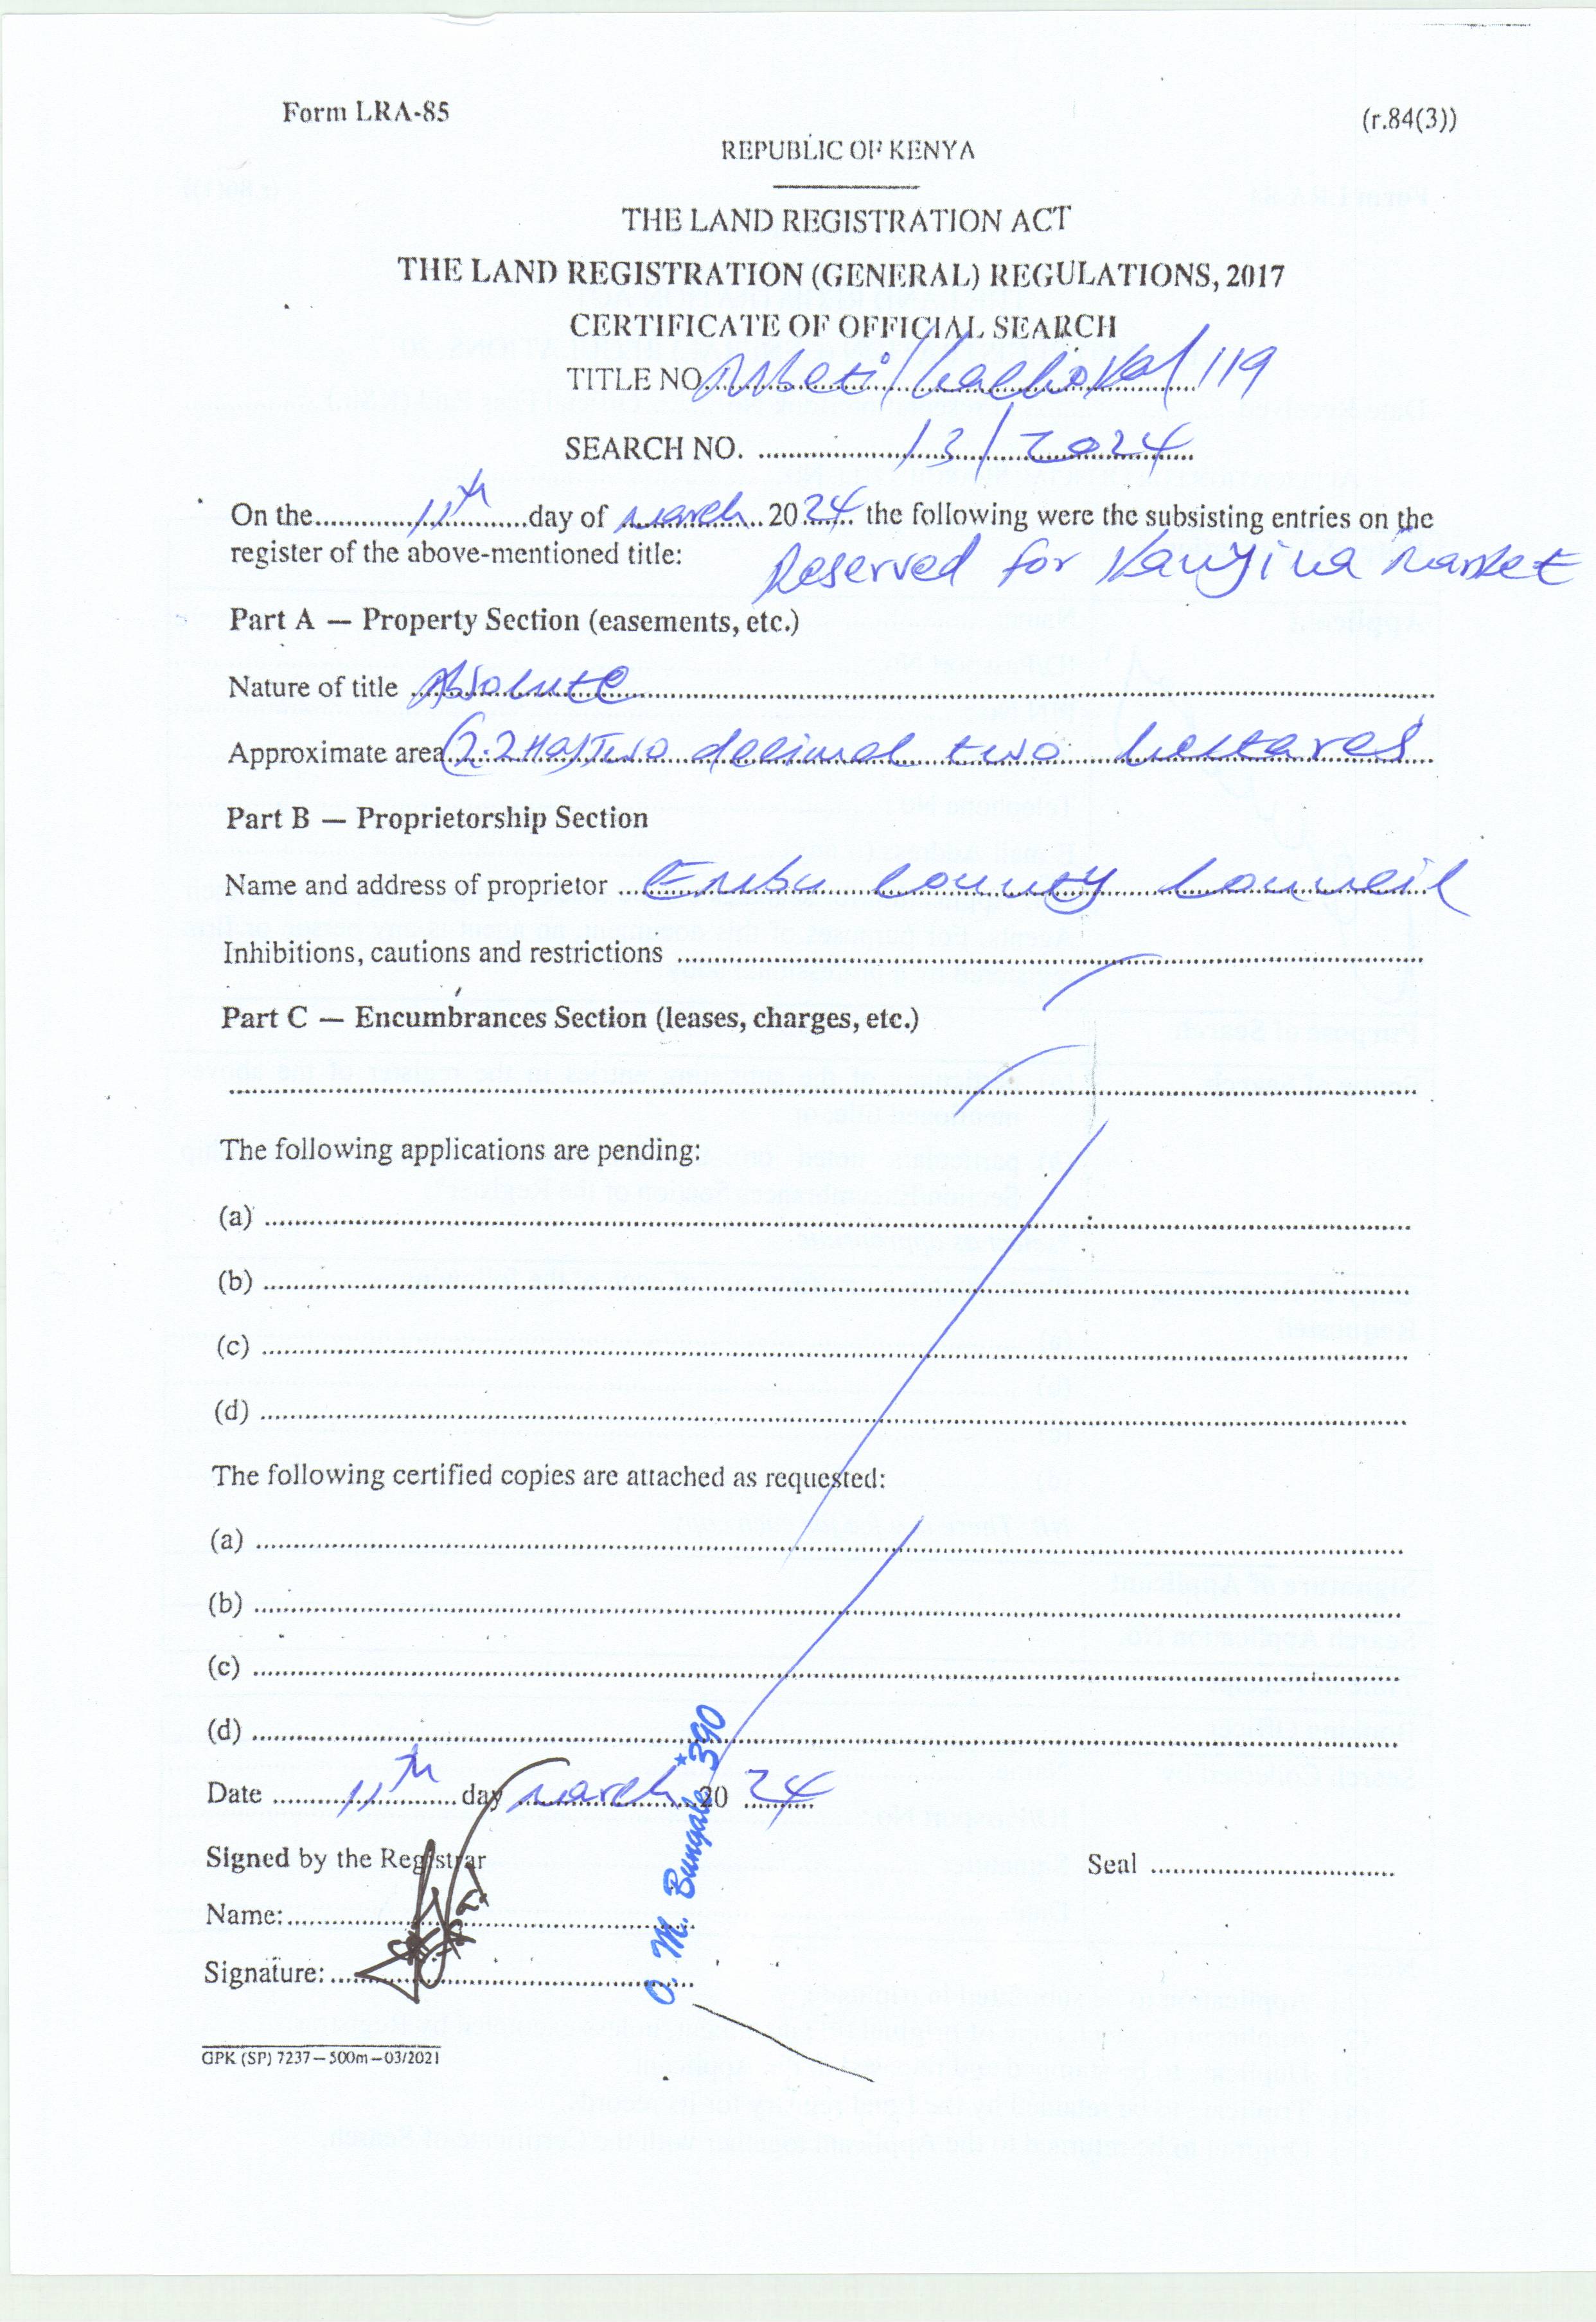 Form LRA-85
(r.84(3))
REPUBLIC OF KENYA
THE LAND REGISTRATION ACT
THE LAND REGISTRATION (GENERAL) REGULATIONS, 2017
CERTIFICATE OF OFFICIAL SEARCH
TITLE NO. Mbeti/Gachoka/119
SEARCH NO. 13/2024
On the 11th day of March 2024 the following were the subsisting entries on the
register of the above-mentioned title:
Reserved for Kanyina Market
Part A — Property Section (easements, etc.)
Nature of title Absolute
Approximate area (2.2Ha) Two decimal two hectares
Part B — Proprietorship Section
Name and address of proprietor Embu County Council
Inhibitions, cautions and restrictions
Part C — Encumbrances Section (leases, charges, etc.)
The following applications are pending:
(a)
(b)
(c)
(d)
The following certified copies are attached as requested:
(a)
(b)
(c)
(d)
Date 11th day March 20 24
O. M. Bungale *390
Signed by the Registrar
Seal
Name:
Signature:
GPK (SP) 7237—500m—03/2021